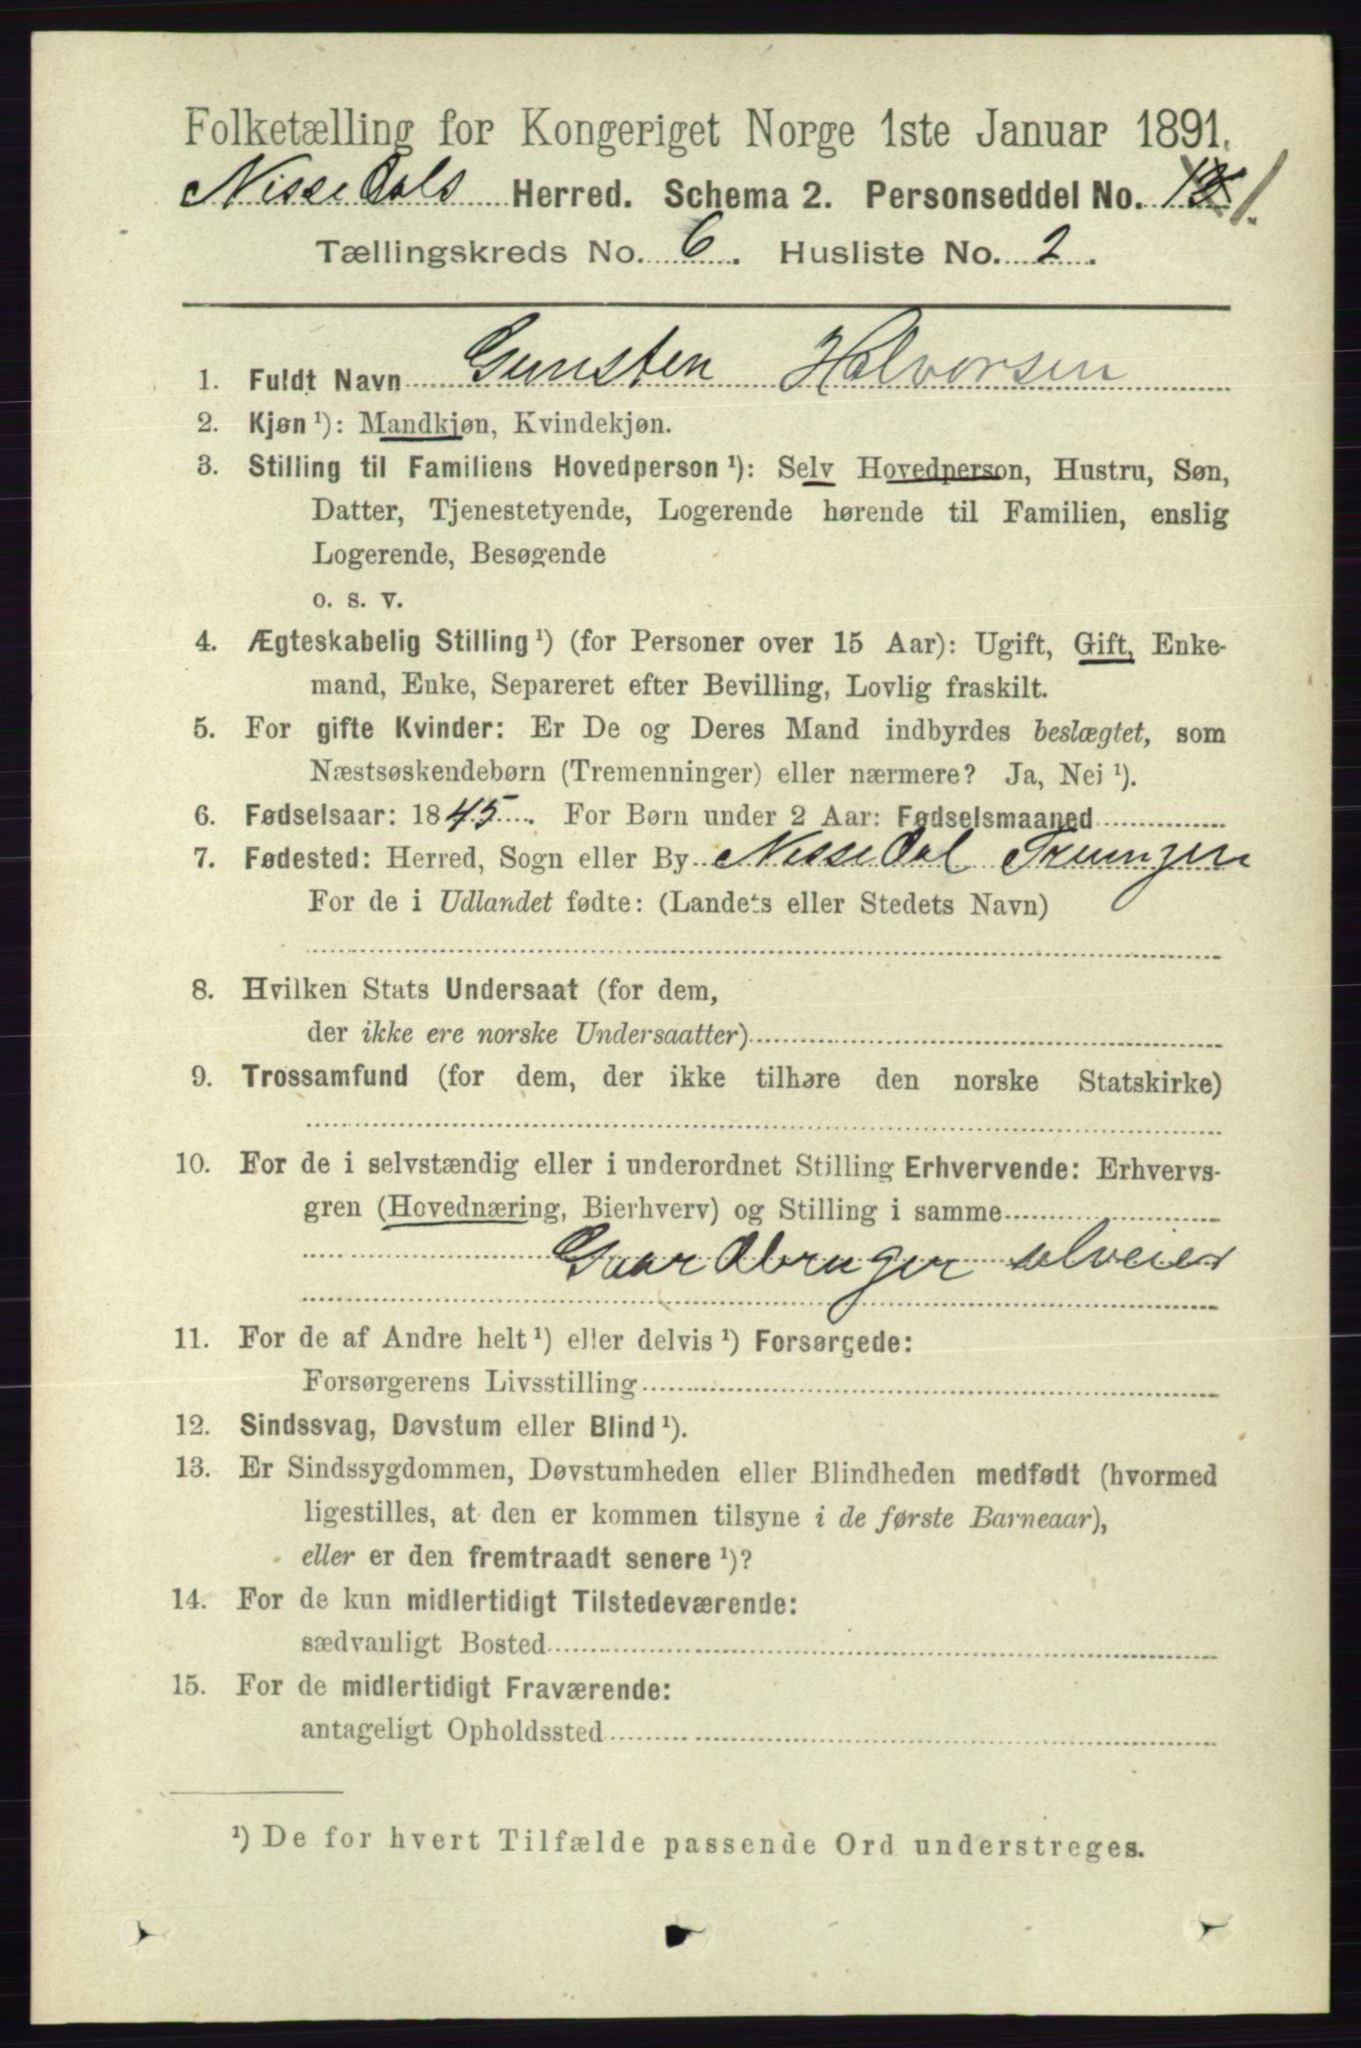 Folketælling for Kongeriget Norge 1ste Januar 1891.
Nissedals Herred. Schema 2. Personseddel No. 1.
Tællingskreds No. 6. Husliste No. 2.
1. Fuldt Navn Gunsten Halvorsen
2. Kjøn ¹): Mandkjøn, Kvindekjøn.
3. Stilling til Familiens Hovedperson ¹): Selv Hovedperson, Hustru, Søn,
Datter, Tjenestetyende, Logerende hørende til Familien, enslig
Logerende, Besøgende
o. s. v.
4. Ægteskabelig Stilling ¹) (for Personer over 15 Aar): Ugift, Gift, Enke-
mand, Enke, Separeret efter Bevilling, Lovlig fraskilt.
5. For gifte Kvinder: Er De og Deres Mand indbyrdes beslægtet, som
Næstsøskendebørn (Tremenninger) eller nærmere? Ja, Nei ¹).
6. Fødselsaar: 1845. For Børn under 2 Aar: Fødselsmaaned
7. Fødested: Herred, Sogn eller By Nissedal Treungen
For de i Udlandet fødte: (Landets eller Stedets Navn)
8. Hvilken Stats Undersaat (for dem,
der ikke ere norske Undersaatter)
9. Trossamfund (for dem, der ikke tilhøre den norske Statskirke)
10. For de i selvstændig eller i underordnet Stilling Erhvervende: Erhvervs-
gren (Hovednæring, Bierhverv) og Stilling i samme
Gaardbruger selveier
11. For de af Andre helt ¹) eller delvis ¹) Forsørgede:
Forsørgerens Livsstilling
12. Sindssvag, Døvstum eller Blind ¹).
13. Er Sindssygdommen, Døvstumheden eller Blindheden medfødt (hvormed
ligestilles, at den er kommen tilsyne i de første Barneaar),
eller er den fremtraadt senere ¹)?
14. For de kun midlertidigt Tilstedeværende:
sædvanligt Bosted
15. For de midlertidigt Fraværende:
antageligt Opholdssted
¹) De for hvert Tilfælde passende Ord understreges.